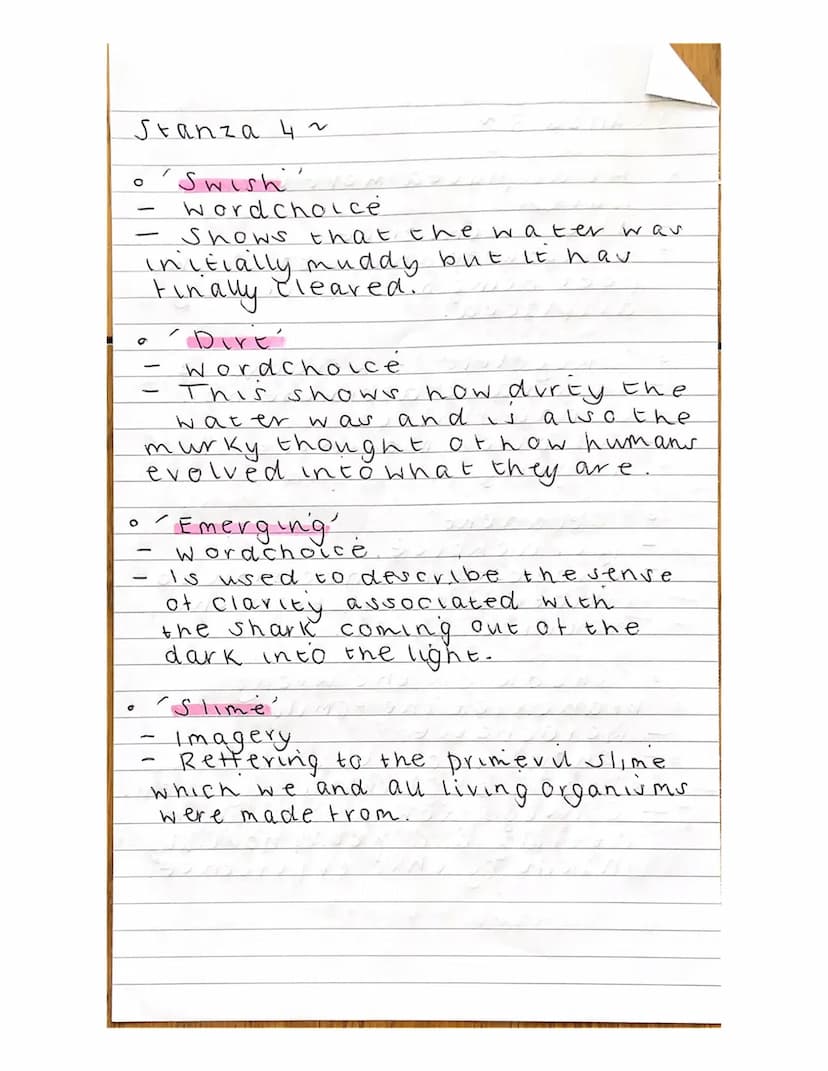 Stanza 4 ~
o 'Swish'
- Wordchoice
- Shows that the water was
initially muddy but it has
finally cleared.
o 'Dirt'
- Wordchoice
- This shows how dirty the
water was and is also the
murky thought of how humans
evolved into what they are.
o 'Emerging'
- Wordchoice
- Is used to describe the sense
of clarity associated with
the shark coming out of the
dark into the light.
• 'Slime'
- Imagery
- Reffering to the primevil slime
which we and all living organisms
were made from.